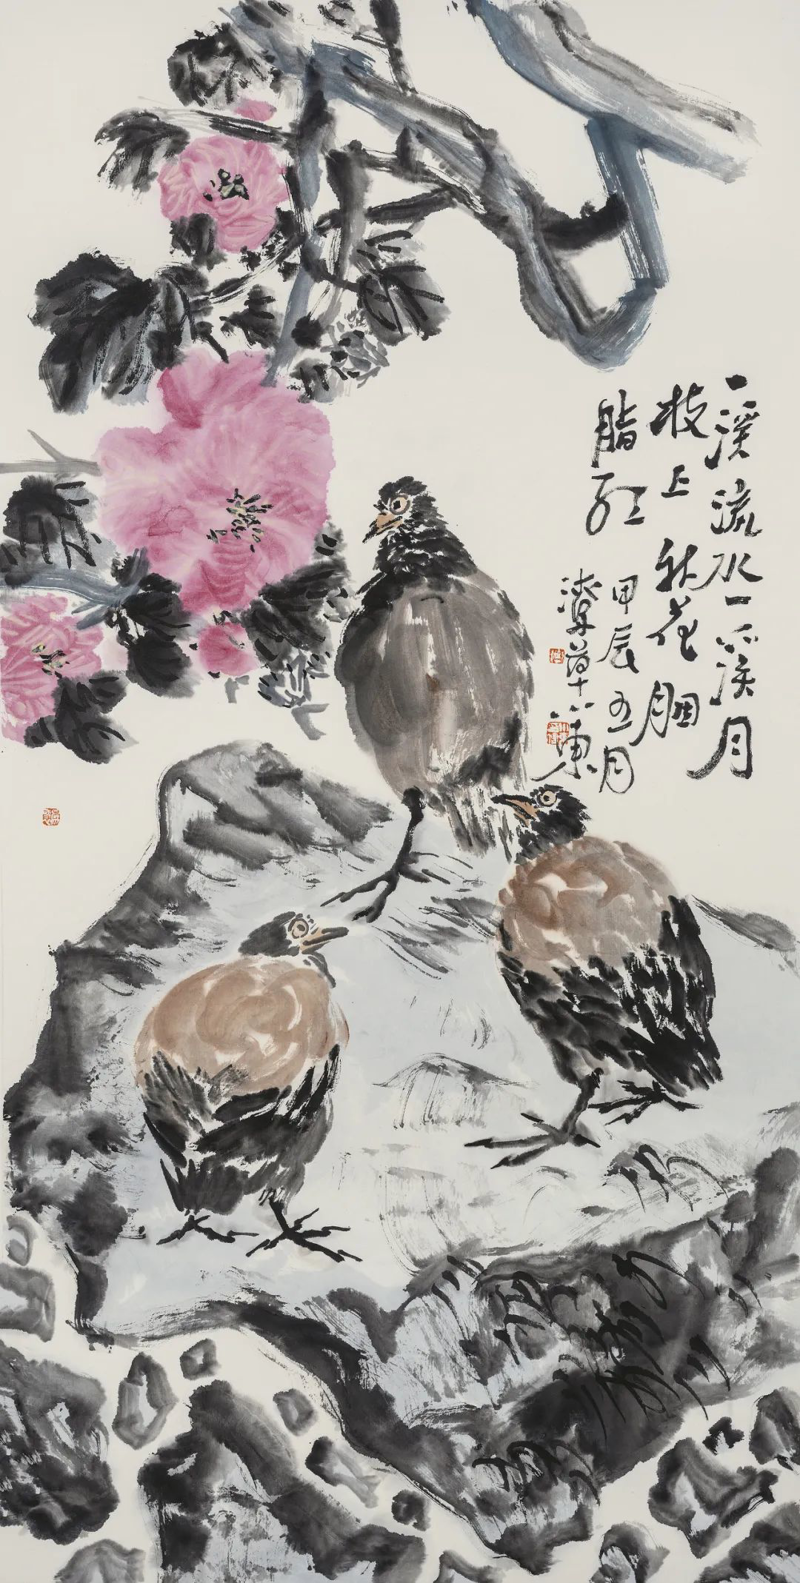 一溪流水一溪月
枝上秋花胭
脂红
甲辰五月
草